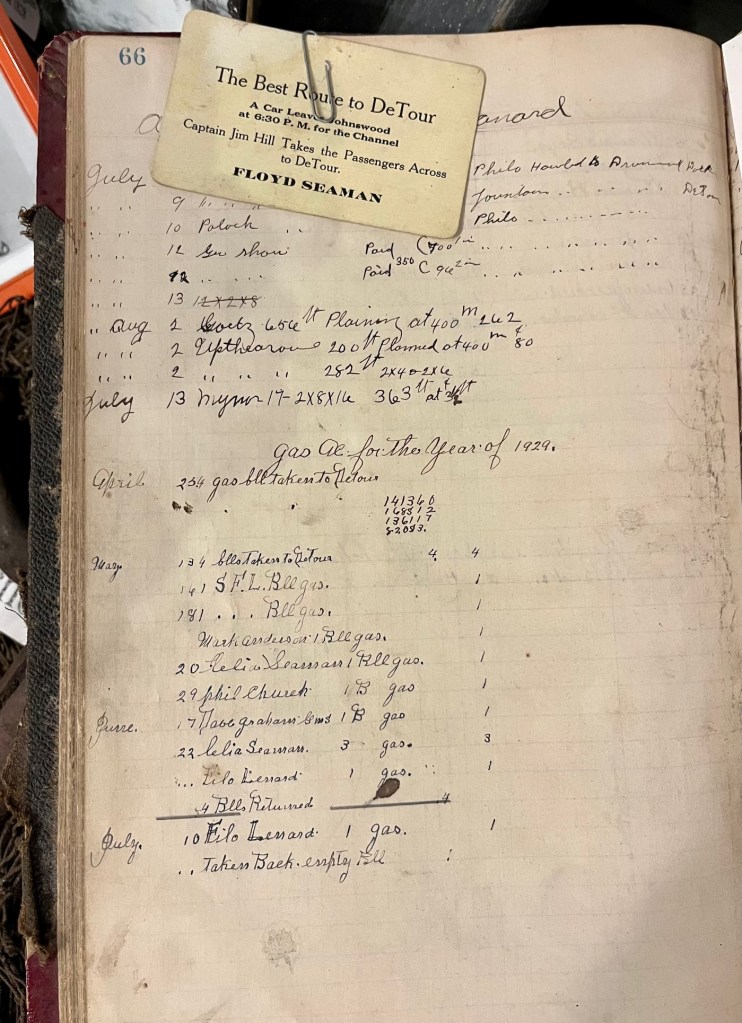 66
The Best Route to DeTour
A Car Leaves Johnswood
at 6:30 P. M. for the Channel
Captain Jim Hill Takes the Passengers Across
to DeTour.
FLOYD SEAMAN
July Philo Hauld to
9 " " " Fountain " " " " DeTour
" " 10 Polock " " Philo " " " "
" " 12 Paid
" " 12 " " " Paid 350
" " 13 12x2x8
" Aug 2 656 ft Plaining at 400 m 262
" " 2 200 ft Planned at 400 m 80
" " 2 " " " " 282 ft 2x4-2x6
July 13 17-2x8x16 363 ft at
Gas Ac. for the Year of 1929.
April 254 gas bll taken to Detour
141360
168512
136117
82093.
May 134 blls Taken to Detour 4 4
161 S F. L. Bll gas. 1
181 . . . Bll gas. 1
Mark anderson 1 Bll gas. 1
20 Celia Seaman 1 Bll gas. 1
29 Phil Church 1 B gas 1
June. 17 Dave graham 1 B gas 1
22 Celia Seaman. 3 gas. 3
... Filo Lenard 1 gas. " 1
4 Blls Returned 4
July. 10 Filo Lenard. 1 gas. 1
.. Taken Back. empty Bll